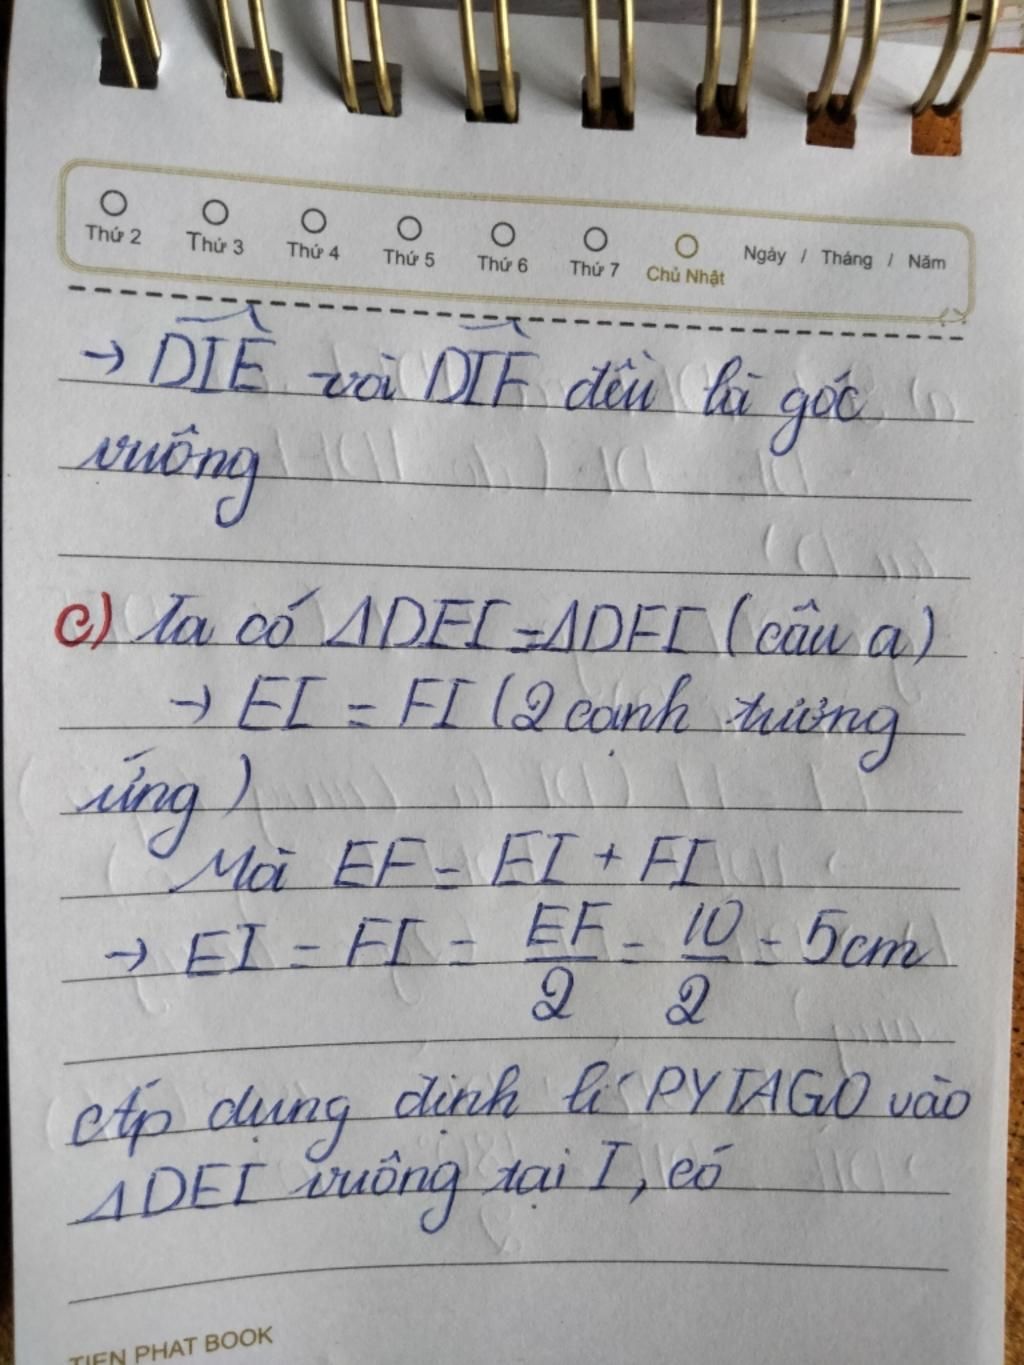 Thứ 2 Thứ 3 Thứ 4 Thứ 5 Thứ 6 Thứ 7 Chủ Nhật Ngày / Tháng / Năm
→ DIE và DIF đều là góc
vuông
c) Ta có ΔDEI = ΔDFI (câu a)
→ EI = FI (2 cạnh tương
ứng)
Mà EF = EI + FI
→ EI = FI = EF/2 = 10/2 = 5cm
Áp dụng định lí PYTAGO vào
ΔDEI vuông tại I, có
TIEN PHAT BOOK